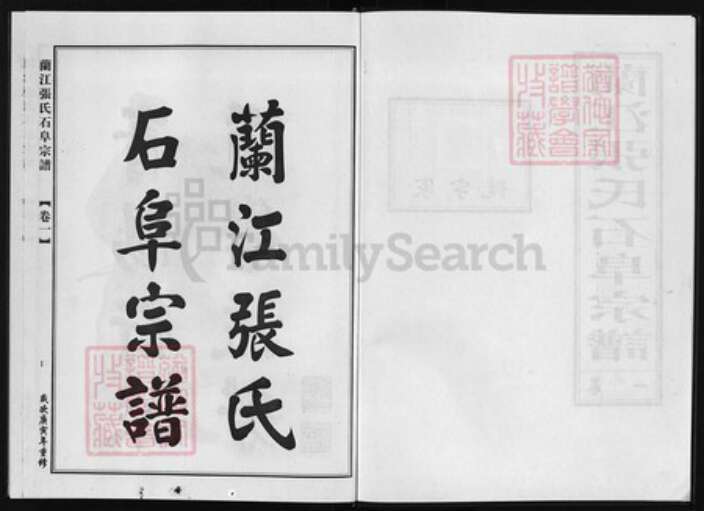 蘭江張氏
石阜宗譜
蘭江張氏石阜宗譜
【卷一】
1
歲次庚寅年重修
FamilySearch